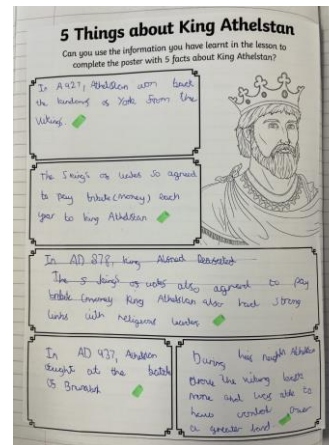 5 Things about King Athelstan
Can you use the information you have learnt in the lesson to
complete the poster with 5 facts about King Athelstan?
In A927, Athelstan won back
the kindom of York from the
vikings.
The 5 kings of wales so agreed
to pay tribute (money) each
year to king Athelstan
In AD 878, King Alfred
The 5 kings of also agreed to pay
tribute (money King Athelstan also had strong
links with religious
In AD 937, Athelstan
fought at the
of
During his Athelstan
drove the viking back
more and was able to
have over
a greater land.